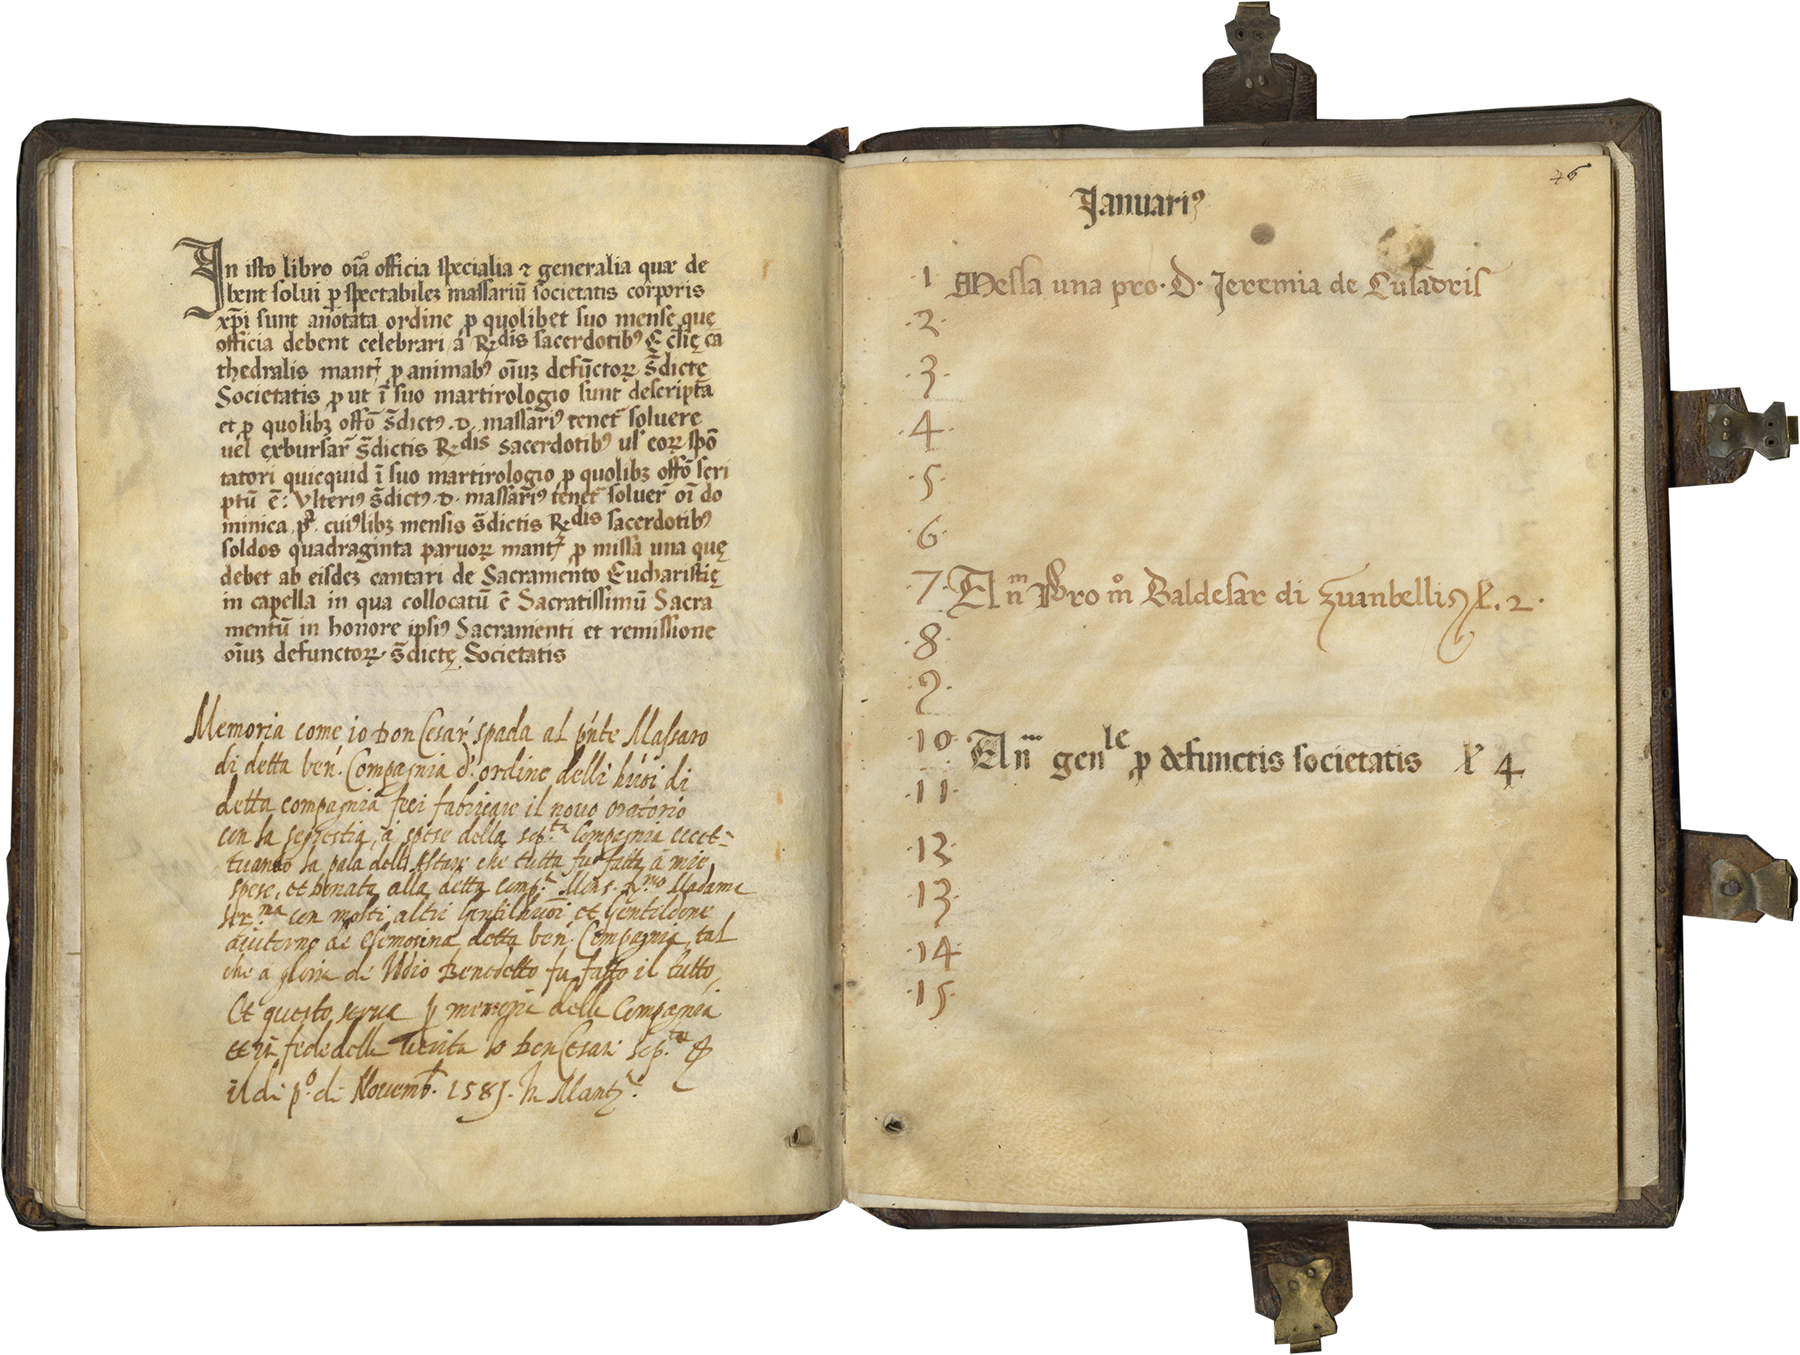 In isto libro oīa officia specialia ⁊ generalia quæ de
bent solui ꝑ spectabilez massariū societatis corporis
xp̄i sunt anotata ordine ꝑ quolibet suo mense que
officia debent celebrari á R.dis sacerdotibꝰ Ecclię ca
thedralis mant. ꝑ animabꝰ oīuz defūctoꝝ s̄dictę
Societatis ꝓut ī suo martirologio sunt descripta
et ꝑ quolibz offō s̄dictꝰ .D. massariꝰ tenet̄ soluere
uel exbursar̄ s̄dictis R.dis sacerdotibꝰ ul̄ eoꝝ spō
tatori quicquid ī suo martirologio ꝑ quolibz offō scri
ptū ē: Vlteriꝰ s̄dictꝰ .D. massariꝰ tenet̄ soluer̄ oī do
minica pª. cuiꝰlibz mensis s̄dictis R.dis sacerdotibꝰ
soldos quadraginta paruoꝝ mant. ꝑ missa una quę
debet ab eisdez cantari de Sacramento Eucharistię
in capella in qua collocatū ē Sacratissimū Sacra
mentū in honore ipsiꝰ Sacramenti et remissione
oīuz defunctoꝝ s̄dictę Societatis
Memoria come io Don Cesar spada al pn̄te Massaro
di detta ben. Compagnia d' ordine delli hūōi di
detta compagnia feci fabricare il nouo oratorio
con la segrestia, à spese della sop.ta Compagnia eccet-
tuando la pala dell' Altare che tutta fu fatta à mie
spese, et donata alla detta comp.a Mons. R.mo Madama
Ser.ma con molti altri Gentilhūōi et Gentildone
aiuterno de elemosina detta ben. Compagnia, tal
che a gloria di Iddio Benedetto fu fatto il tutto,
Et questo serua ꝑ memoria della Compagnia
et in fede della uerita Io Don Cesare sop.to
il di pº. di Nouemb. 1585. In Mant.
46
Ianuariꝰ
·1· Messa una pro · D · Jeremia de Cusadris
·2·
·3·
·4·
·5·
·6·
·7· An̄m Pro m̊ Baldesar di Zuanbellis L. 2·
·8·
·9·
·10· An̄m genle ꝑ defunctis societatis L 4
·11·
·12·
·13·
·14·
·15·